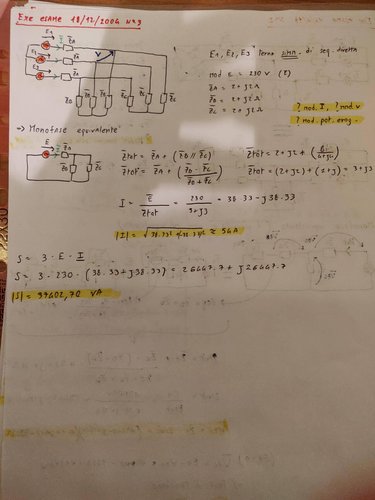 Exe esame 18/12/2004 N°3
E1
E2
E3
V
Z̄A
Z̄A
Z̄A
E1, E2, E3 terna simm. di seq. diretta
mod E = 230 V (Σ)
Z̄A = 2+j2Ω
Z̄B = 2+j2Ω
Z̄C = 2+j2Ω
? mod. I, ? mod. V
? mod. pot. erog.
Z̄B Z̄B Z̄B Z̄C Z̄C Z̄C
=> Monofase equivalente
E
Z̄A
Z̄B
Z̄C
Z̄tot = Z̄A + (Z̄B // Z̄C)
Z̄tot = Z̄A + (Z̄B · Z̄C / Z̄B + Z̄C)
Z̄tot = 2+j2 +
Z̄tot = (2+j2) + (1+j) = 3+j3
I = E / Z̄tot = 230 / 3+j3 = 38.33 - j38.33
|I| = √38.33² + 38.33² ≅ 54A
S = 3 · E · I
S = 3 · 230 · (38.33 + j38.33) = 26447.7 + j26447.7
|S| = 37402,70 VA